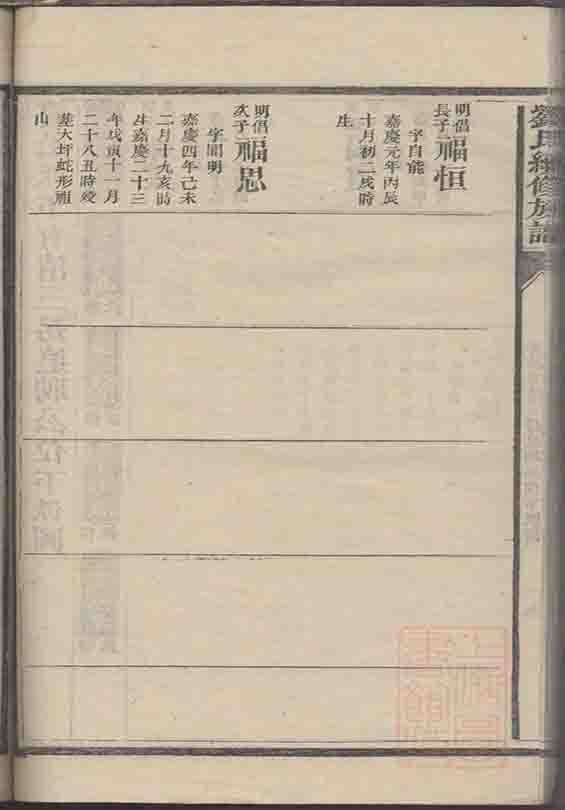 劉氏續修族譜
明倡
長子
福恒
字自能
嘉慶元年丙辰
十月初二戌時
生
明倡
次子
福思
字聞明
嘉慶四年己未
二月十九亥時
生嘉慶二十三
年戊寅十一月
二十八丑時歿
塟大坪蛇形祖
山